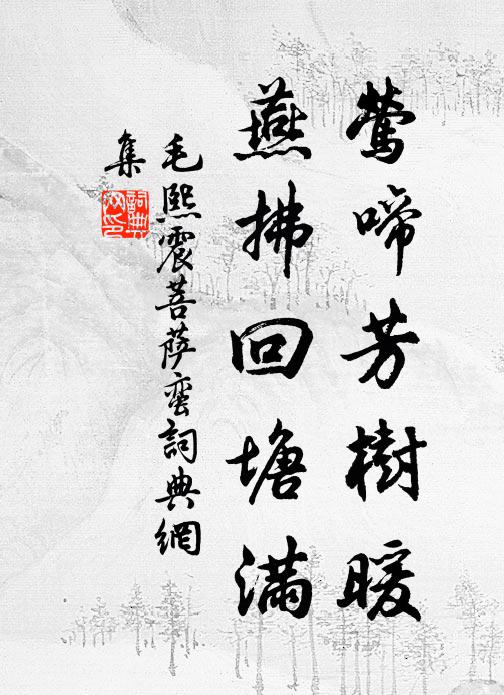 鶯啼芳樹暖
燕拂回塘滿
毛熙震菩薩蠻詞典網
集
詞典網印